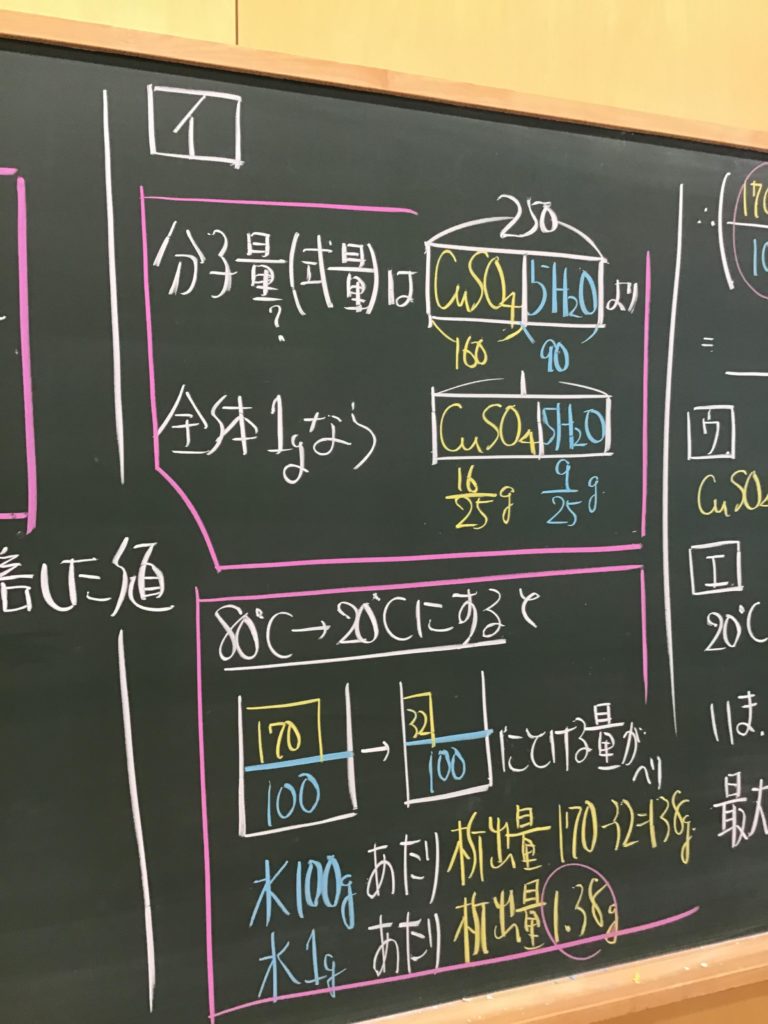 イ
250
分子量(式量)は CuSO4 5H2O より
?
160 90
1
全体1gなら CuSO4 5H2O
16/25 g 9/25 g
倍した値
80℃→20℃にすると
170 → 32 にとける量がへり
100 100
水100gあたり 析出量 170-32=138g
水1gあたり 析出量 1.38g
∴(170
10
=
ウ
CuSO4
エ
20℃
いま.
最大